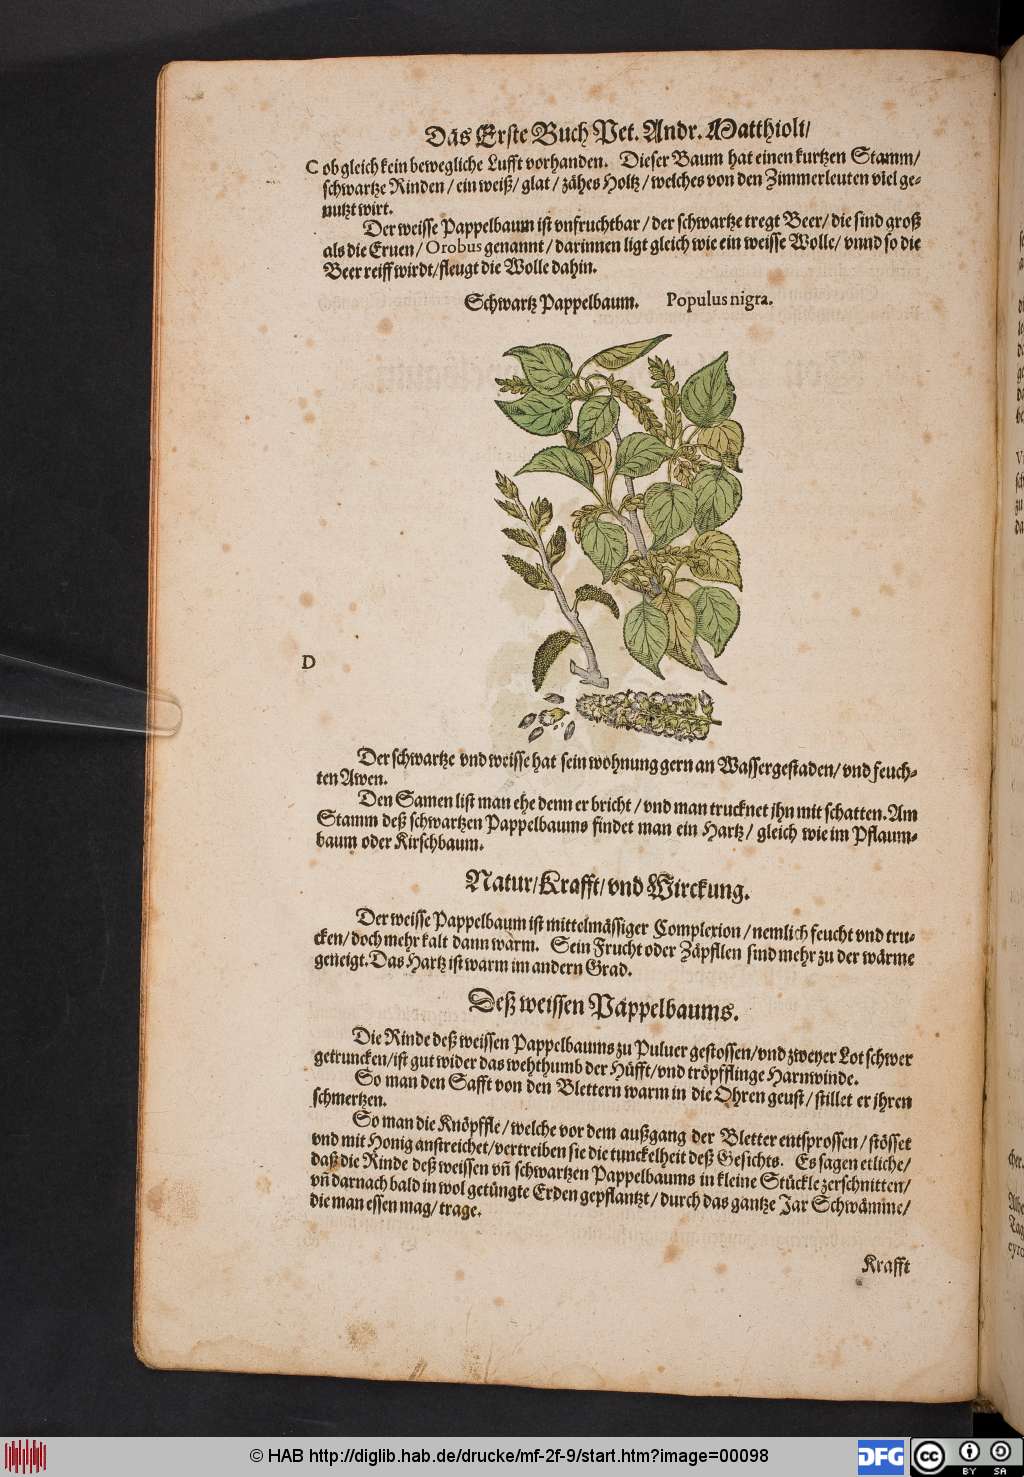 Das Erste Buch Pet. Andr. Matthioli/
C ob gleich kein bewegliche Lufft vorhanden. Dieser Baum hat einen kurtzen Stamm/
schwartze Rinden / ein weiß / glat / zähes Holtz / welches von den Zimmerleuten viel ge-
nutzt wirt.
Der weisse Pappelbaum ist vnfruchtbar / der schwartze tregt Beer / die sind groß
als die Eruen / Orobus genannt / darinnen ligt gleich wie ein weisse Wolle / vnnd so die
Beer reiff wirdt / fleugt die Wolle dahin.
Schwartz Pappelbaum. Populus nigra.
D
Der schwartze vnd weisse hat sein wohnung gern an Wassergestaden / vnd feuch-
ten Awen.
Den Samen list man ehe denn er bricht / vnd man trucknet ihn mit schatten. Am
Stamm deß schwartzen Pappelbaums findet man ein Hartz / gleich wie im Pflaum-
baum oder Kirschbaum.
Natur / Krafft / vnd Wirckung.
Der weisse Pappelbaum ist mittelmässiger Complexion / nemlich feucht vnd tru-
cken / doch mehr kalt dann warm. Sein Frucht oder Zäpfflen sind mehr zu der wärme
geneigt. Das Hartz ist warm im andern Grad.
Deß weissen Pappelbaums.
Die Rinde deß weissen Pappelbaums zu Puluer gestossen / vnd zweyer Lot schwer
getruncken / ist gut wider das wehthumb der Hüfft / vnd tröpfflinge Harnwinde.
So man den Safft von den Blettern warm in die Ohren geust / stillet er jhren
schmertzen.
So man die Knöpffle / welche vor dem außgang der Bletter entsprossen / stösset
vnd mit Honig anstreichet / vertreiben sie die tunckelheit deß Gesichts. Es sagen etliche /
daß die Rinde deß weissen vn̄ schwartzen Pappelbaums in kleine Stückle zerschnitten /
vn̄ darnach bald in wol getüngte Erden gepflantzt / durch das gantze Jar Schwämme /
die man essen mag / trage.
Krafft
© HAB http://diglib.hab.de/drucke/mf-2f-9/start.htm?image=00098
DFG
cc
BY SA